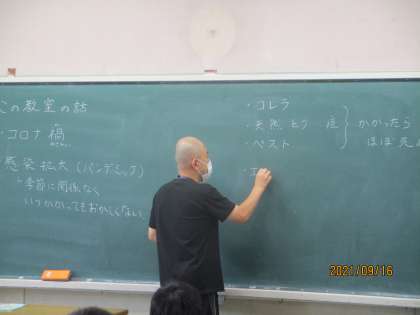 この教室の話
・コロナ禍
感染拡大(パンデミック)
季節に関係なく
いつかかってもおかしくない
・コレラ
・天然とう 痘
・ペスト
かかったら
ほぼ死
2021/09/16